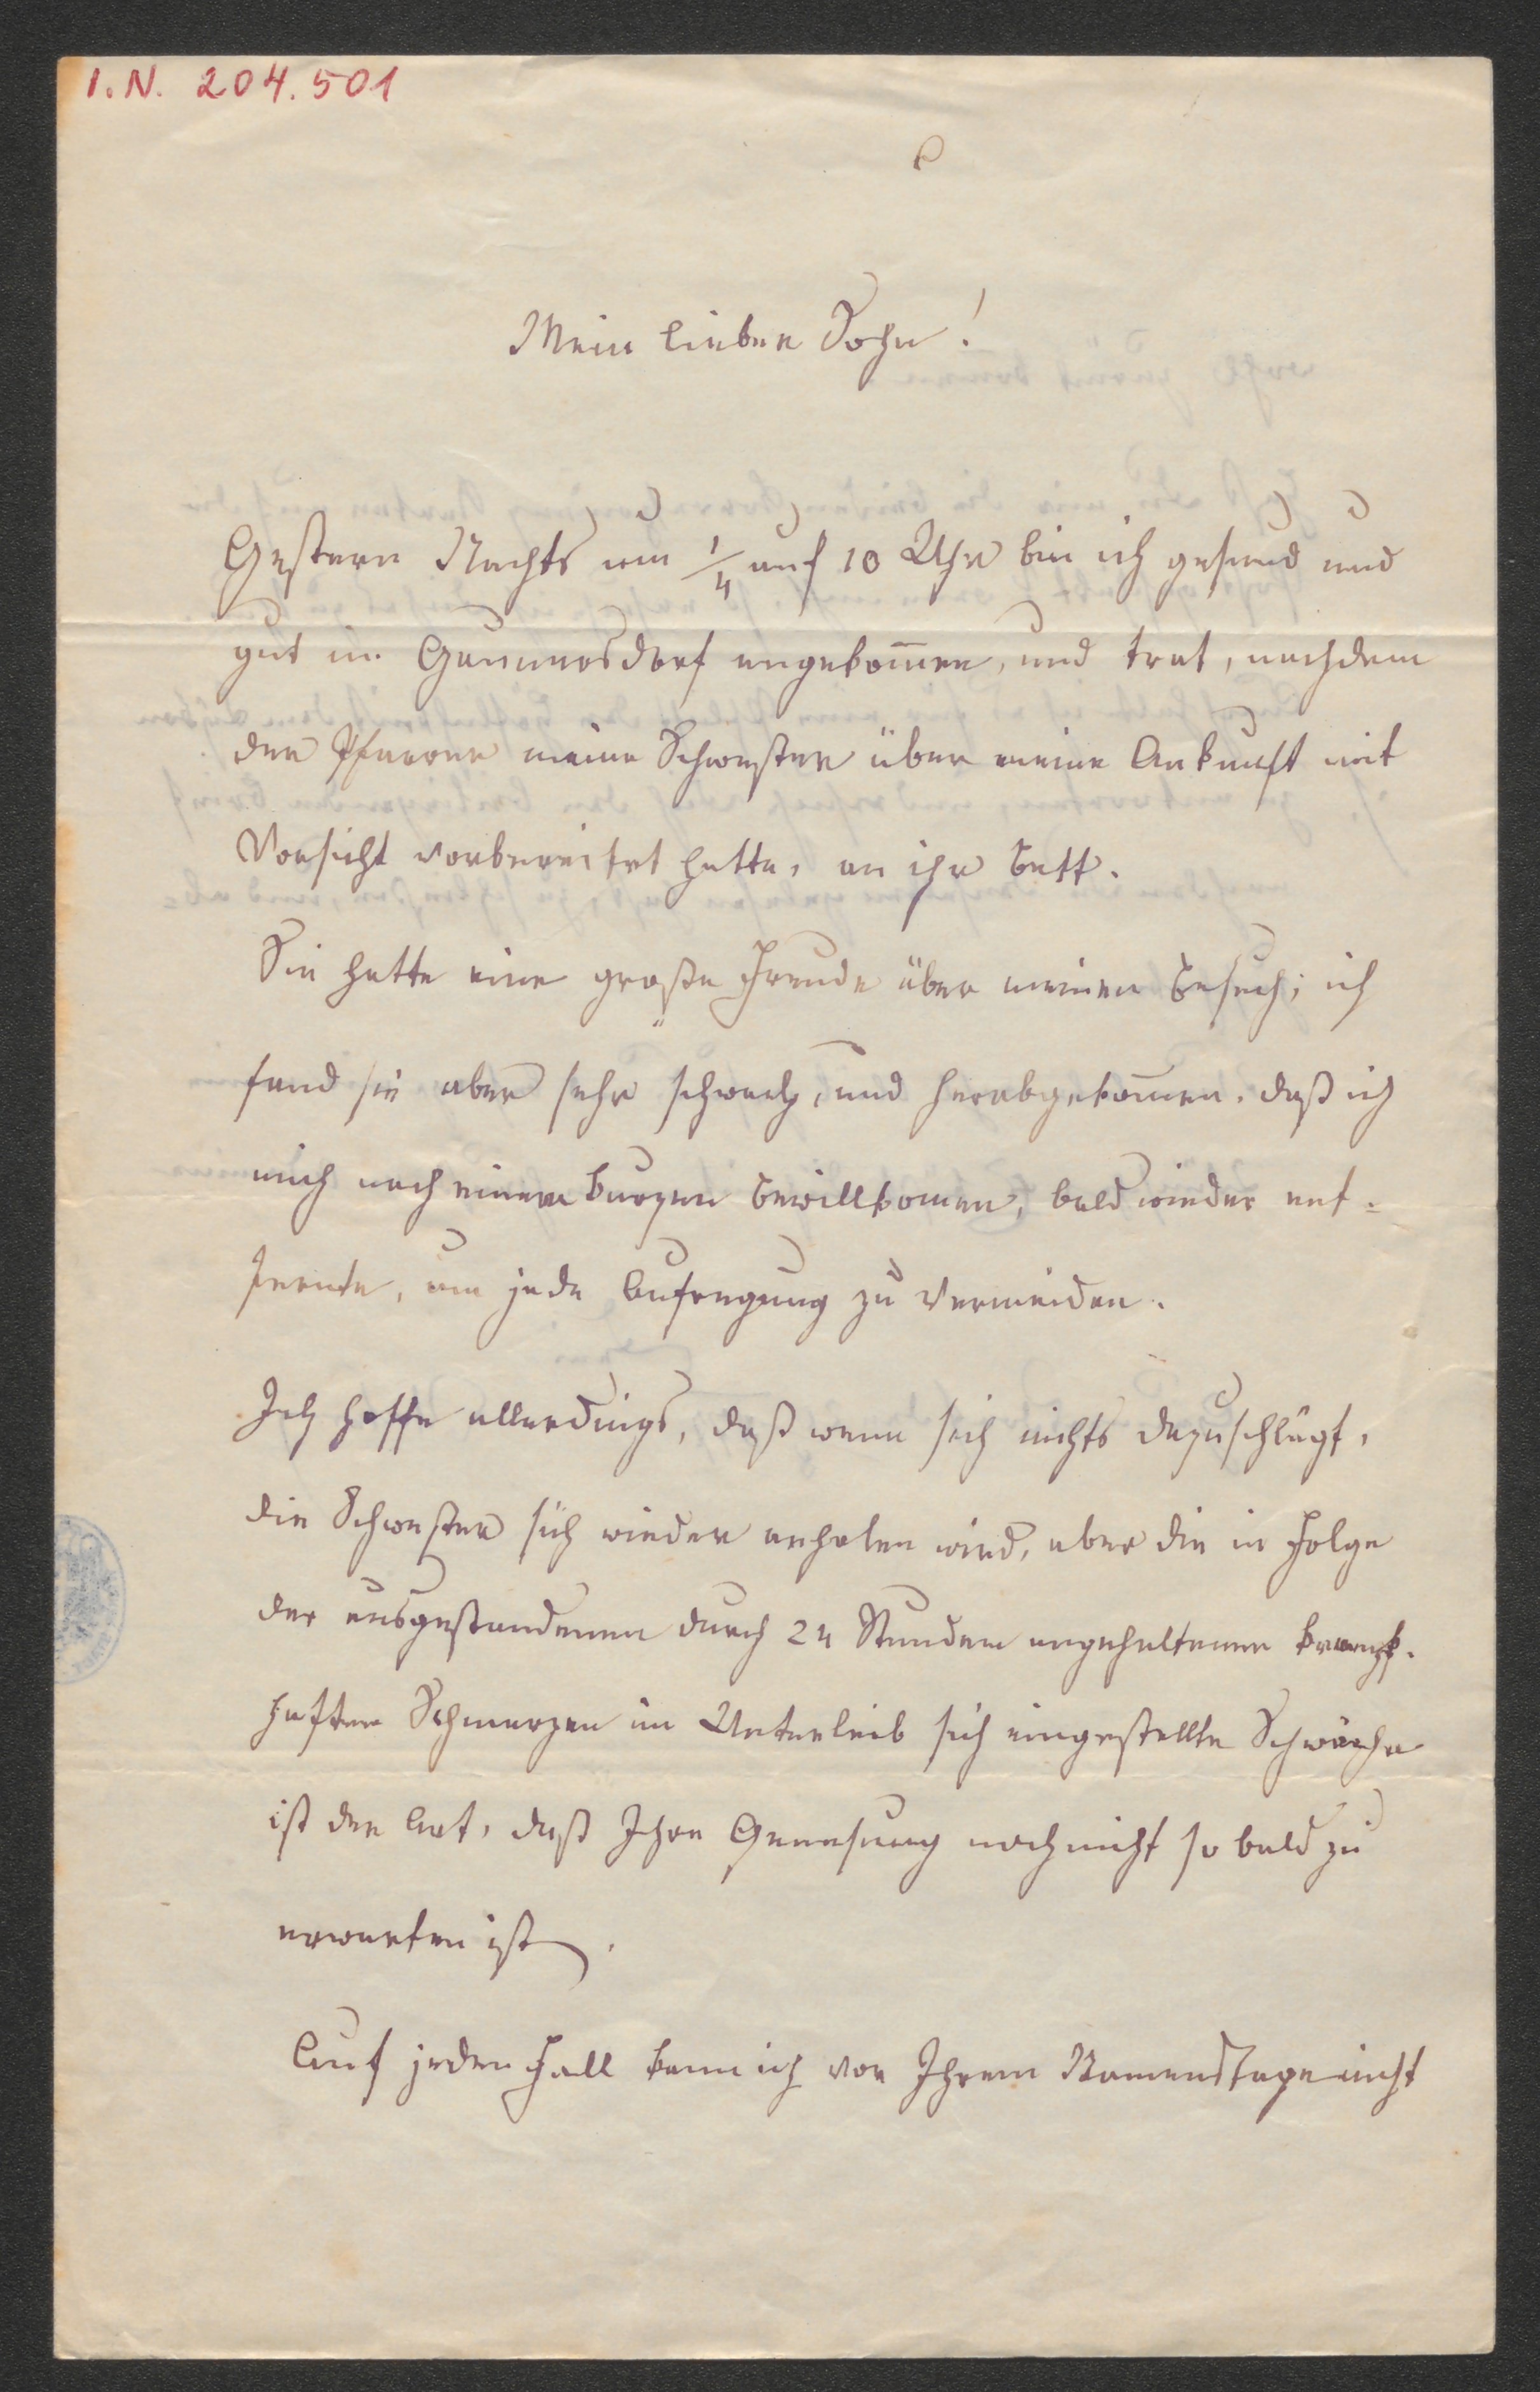 I.N. 204.501
Mein lieber Sohn!
Gestern Nachts um 1/4 auf 10 Uhr bin ich gesund und
gut in Gaunersdorf angekom̄en, und trat, nachdem
der Pfarrer meine Schwester über meine Ankunft mit
Vorsicht vorbereitet hatte, an ihr Bett.
Sie hatte eine große Freude über meinen Besuch; ich
fand sie aber sehr schwach, und herabgekom̄en, daß ich
mich nach einem kurzen Bewillkomen, bald wieder ent-
fernte, um jede Aufregung zu vermeiden.
Ich hoffe allerdings, daß wenn sich nichts dazuschlägt,
die Schwester sich wieder erholen wird, aber die in Folge
der ausgestandenen durch 24 Stunden angehaltenen krampf-
haften Schmerzen im Unterleib sich eingestellte Schwäche
ist der Art, daß Ihre Genesung noch nicht so bald zu
erwarten ist.
Auf jeden Fall kann ich vor Ihrem Namenstage nicht